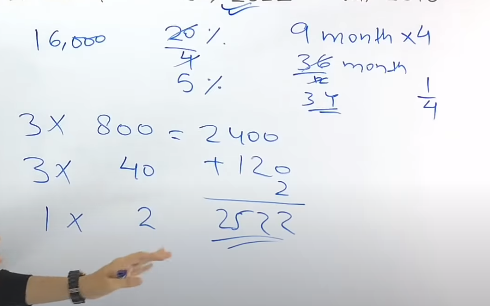 16,000 20/4 % 9 month x4
5 % 36/12 month
3Y 1/4
3 x 800 = 2400
3 x 40 + 120
2
1 x 2 2522